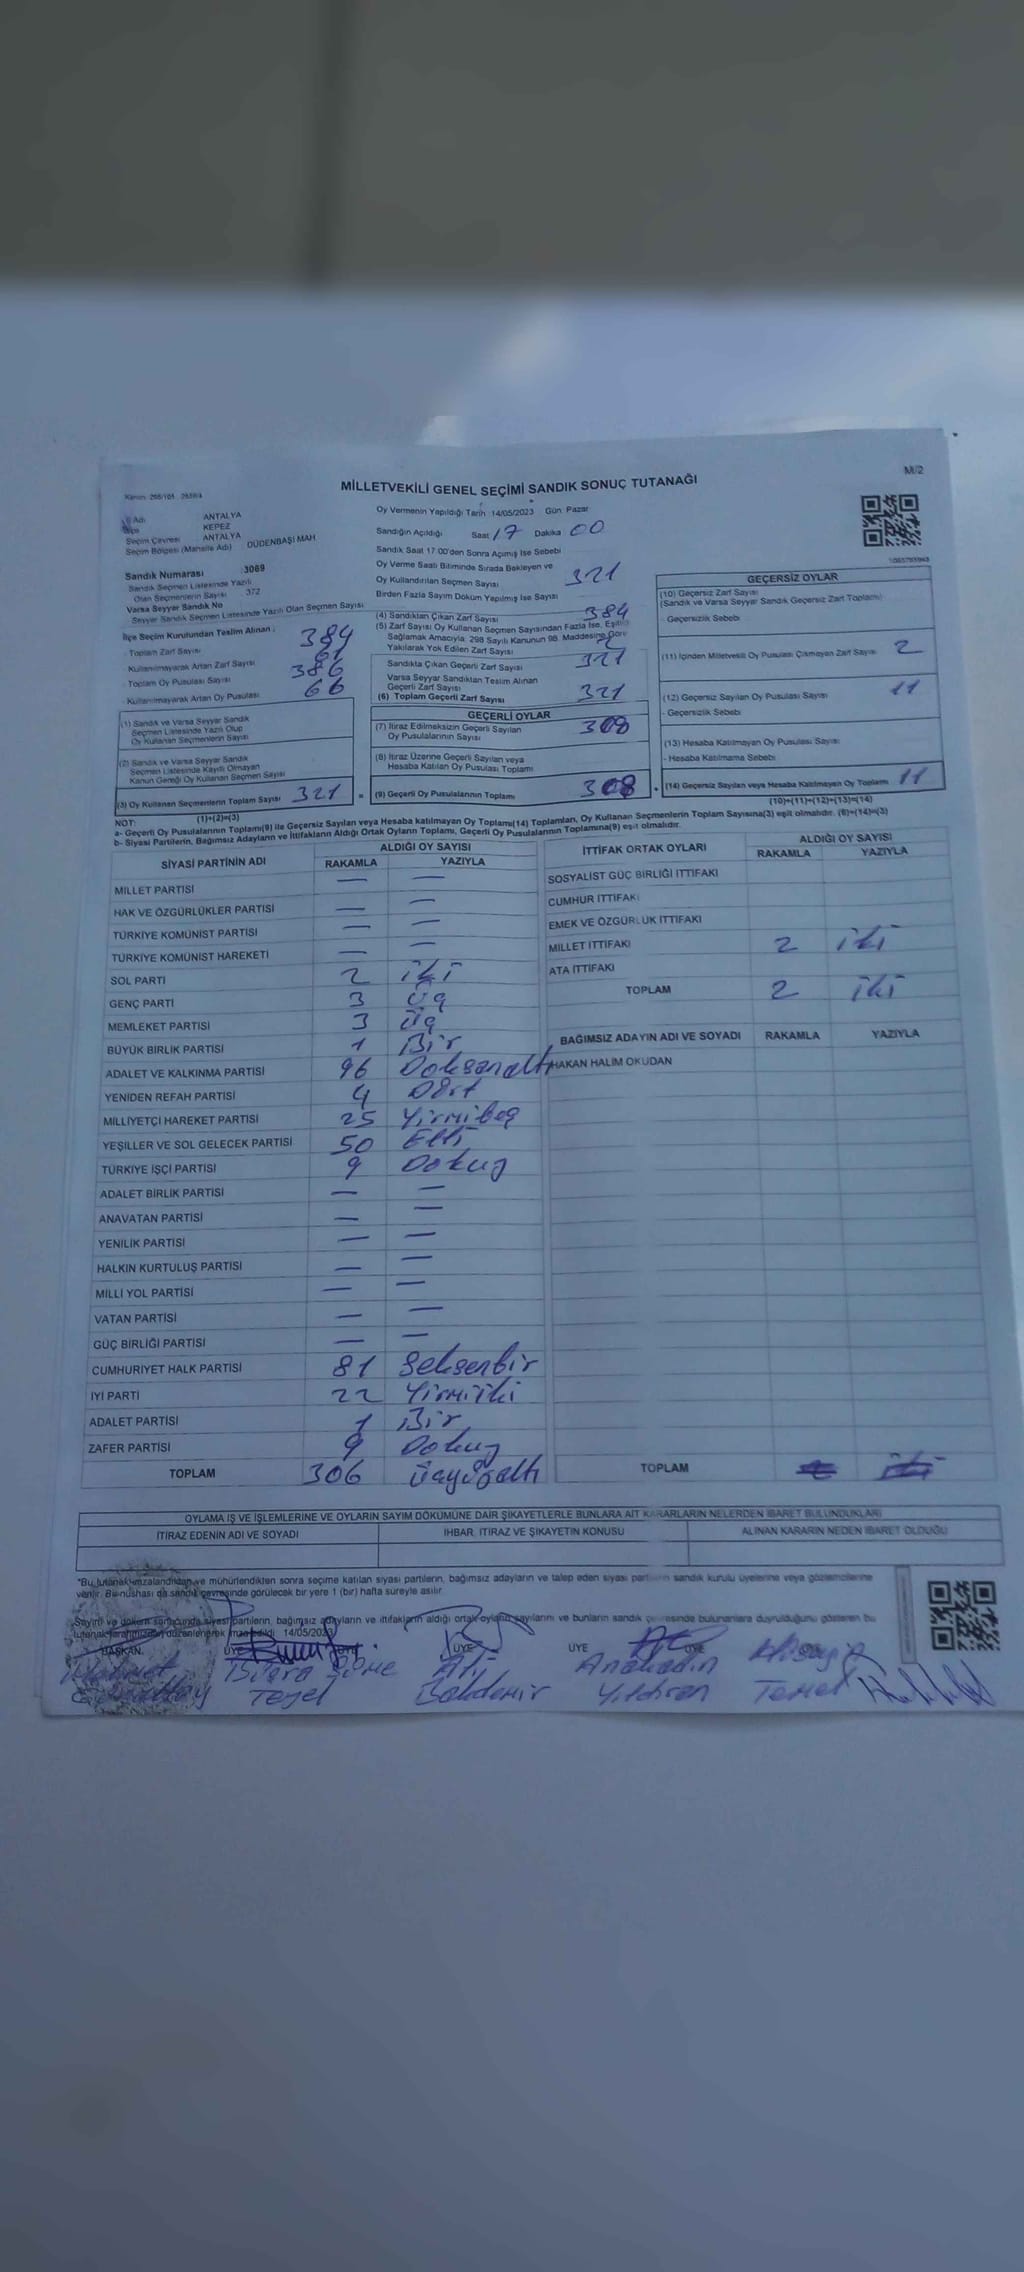 M/2
MİLLETVEKİLİ GENEL SEÇİMİ SANDIK SONUÇ TUTANAĞI
İl Adı ANTALYA
İlçe KEPEZ
Seçim Çevresi ANTALYA
Seçim Bölgesi (Mahalle Adı) DÜDENBAŞI MAH
Sandık Numarası 3069
Sandık Seçmen Listesinde Yazılı
Olan Seçmenlerin Sayısı 372
Varsa Seyyar Sandık No
Seyyar Sandık Seçmen Listesinde Yazılı Olan Seçmen Sayısı
İlçe Seçim Kurulundan Teslim Alınan
Toplam Zarf Sayısı 384
Kullanılmayarak Artan Zarf Sayısı
Toplam Oy Pusulası Sayısı 386
Kullanılmayarak Artan Oy Pusulası 66
(1) Sandık ve Varsa Seyyar Sandık
Seçmen Listesinde Yazılı Olup
Oy Kullanan Seçmenlerin Sayısı
(2) Sandık ve Varsa Seyyar Sandık
Seçmen Listesinde Kayıtlı Olmayan
Kanun Gereği Oy Kullanan Seçmen Sayısı
(3) Oy Kullanan Seçmenlerin Toplam Sayısı 321
Oy Vermenin Yapıldığı Tarih 14/05/2023 Gün Pazar
Sandığın Açıldığı Saat 17 Dakika 00
Sandık Saat 17.00'den Sonra Açımış İse Sebebi
Oy Verme Saati Bitiminde Sırada Bekleyen ve
Oy Kullandırılan Seçmen Sayısı 321
Birden Fazla Sayım Döküm Yapılmış İse Sayısı
(4) Sandıktan Çıkan Zarf Sayısı 384
(5) Zarf Sayısı Oy Kullanan Seçmen Sayısından Fazla İse, Eşitliği
Sağlamak Amacıyla 298 Sayılı Kanunun 98. Maddesine Göre
Yakılarak Yok Edilen Zarf Sayısı
Sandıkta Çıkan Geçerli Zarf Sayısı 321
Varsa Seyyar Sandıktan Teslim Alınan
Geçerli Zarf Sayısı
(6) Toplam Geçerli Zarf Sayısı 321
GEÇERLİ OYLAR
(7) İtiraz Edilmeksizin Geçerli Sayılan
Oy Pusulalarının Sayısı 308
(8) İtiraz Üzerine Geçerli Sayılan veya
Hesaba Katılan Oy Pusulası Toplamı
= (9) Geçerli Oy Pusulalarının Toplamı 308
GEÇERSİZ OYLAR
(10) Geçersiz Zarf Sayısı
(Sandık ve Varsa Seyyar Sandık Geçersiz Zarf Toplamı)
- Geçersizlik Sebebi
(11) İçinden Milletvekili Oy Pusulası Çıkmayan Zarf Sayısı 2
(12) Geçersiz Sayılan Oy Pusulası Sayısı 11
- Geçersizlik Sebebi
(13) Hesaba Katılmayan Oy Pusulası Sayısı
- Hesaba Katılmama Sebebi
+ (14) Geçersiz Sayılan veya Hesaba Katılmayan Oy Toplamı 11
NOT: (1)+(2)=(3) (10)+(11)+(12)+(13)=(14)
a- Geçerli Oy Pusulalarının Toplamı(9) ile Geçersiz Sayılan veya Hesaba katılmayan Oy Toplamı(14) Toplamları, Oy Kullanan Seçmenlerin Toplam Sayısına(3) eşit olmalıdır. (9)+(14)=(3)
b- Siyasi Partilerin, Bağımsız Adayların ve İttifakların Aldığı Ortak Oyların Toplamı, Geçerli Oy Pusulalarının Toplamına(9) eşit olmalıdır.
SİYASİ PARTİNİN ADI ALDIĞI OY SAYISI
RAKAMLA YAZIYLA
MİLLET PARTİSİ — —
HAK VE ÖZGÜRLÜKLER PARTİSİ — —
TÜRKİYE KOMÜNİST PARTİSİ — —
TÜRKİYE KOMÜNİST HAREKETİ — —
SOL PARTİ 2 iki
GENÇ PARTİ 3 Üç
MEMLEKET PARTİSİ 3 Üç
BÜYÜK BİRLİK PARTİSİ 1 Bir
ADALET VE KALKINMA PARTİSİ 96 Doksanaltı
YENİDEN REFAH PARTİSİ 4 Dört
MİLLİYETÇİ HAREKET PARTİSİ 25 Yirmibeş
YEŞİLLER VE SOL GELECEK PARTİSİ 50 Elli
TÜRKİYE İŞÇİ PARTİSİ 9 Dokuz
ADALET BİRLİK PARTİSİ — —
ANAVATAN PARTİSİ — —
YENİLİK PARTİSİ — —
HALKIN KURTULUŞ PARTİSİ — —
MİLLİ YOL PARTİSİ — —
VATAN PARTİSİ — —
GÜÇ BİRLİĞİ PARTİSİ — —
CUMHURİYET HALK PARTİSİ 81 Seksenbir
İYİ PARTİ 22 Yirmiiki
ADALET PARTİSİ 1 Bir
ZAFER PARTİSİ 9 Dokuz
TOPLAM 306 Üçyüzaltı
İTTİFAK ORTAK OYLARI ALDIĞI OY SAYISI
RAKAMLA YAZIYLA
SOSYALİST GÜÇ BİRLİĞİ İTTİFAKI
CUMHUR İTTİFAKI
EMEK VE ÖZGÜRLÜK İTTİFAKI
MİLLET İTTİFAKI 2 iki
ATA İTTİFAKI
TOPLAM 2 iki
BAĞIMSIZ ADAYIN ADI VE SOYADI RAKAMLA YAZIYLA
HAKAN HALİM OKUDAN
TOPLAM
OYLAMA İŞ VE İŞLEMLERİNE VE OYLARIN SAYIM DÖKÜMÜNE DAİR ŞİKAYETLERLE BUNLARA AİT KARARLARIN NELERDEN İBARET BULUNDUKLARI
İTİRAZ EDENİN ADI VE SOYADI İHBAR, İTİRAZ VE ŞİKAYETİN KONUSU ALINAN KARARIN NEDEN İBARET OLDUĞU
*Bu tutanak imzalandıktan ve mühürlendikten sonra seçime katılan siyasi partilerin, bağımsız adayların ve talep eden siyasi partilerin sandık kurulu üyelerine veya gözlemcilerine
verilir. Bu nüshası da sandık çevresinde görülecek bir yere 1 (bir) hafta süreyle asılır.
Sayım ve döküm sonucunda siyasi partilerin, bağımsız adayların ve ittifakların aldığı ortak oyların sayılarını ve bunların sandık çevresinde bulunanlara duyrulduğunu gösteren bu
tutanak tarafımızdan düzenlenerek imza edildi. 14/05/2023
BAŞKAN ÜYE ÜYE ÜYE ÜYE
Ali Yıldıran Temel